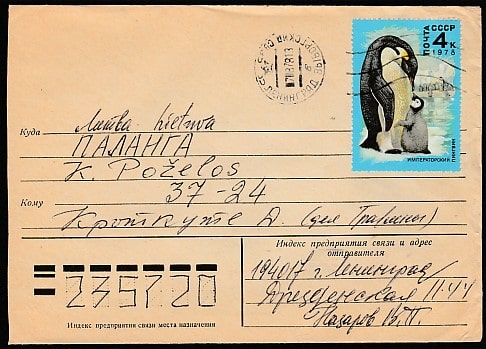 ПОЧТА СССР
4 К
1978
ИМПЕРАТОРСКИЙ ПИНГВИН
Куда Литва Lietuva
ПАЛАНГА
K. Poželos
37-24
Кому Кроткуте А. (для Гражины)
Индекс предприятия связи и адрес
отправителя
194017 г. Ленинград
Дрезденская 11-44
Назаров В.П.
235720
Индекс предприятия связи места назначения